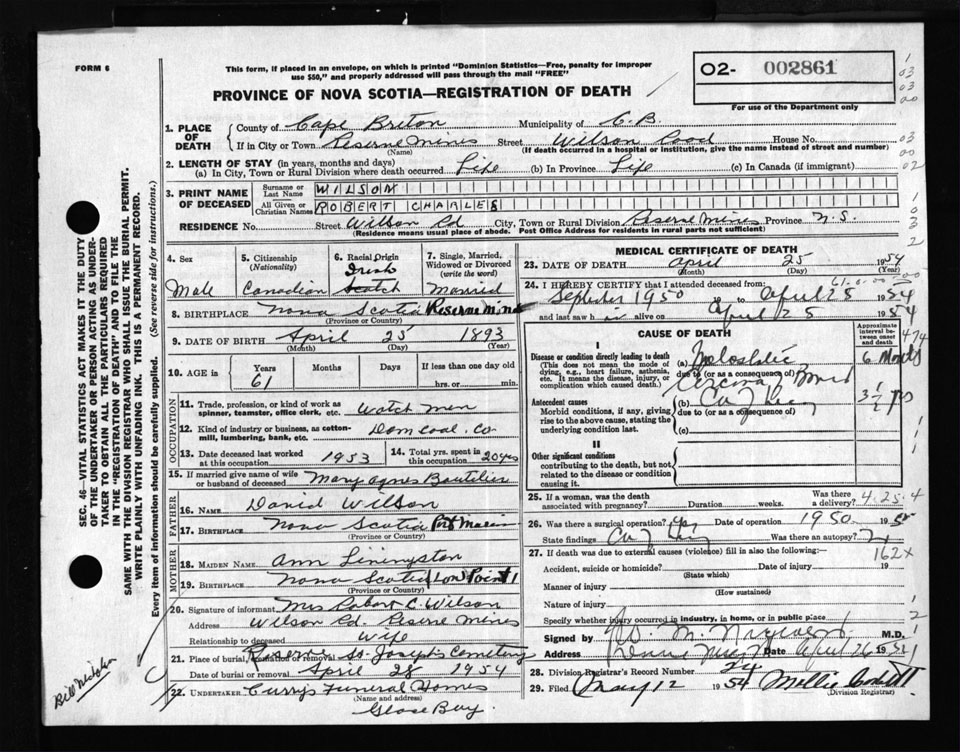 FORM 6
This form, if placed in an envelope, on which is printed "Dominion Statistics—Free, penalty for improper
use $50," and properly addressed will pass through the mail "FREE"
02- 002861
For use of the Department only
PROVINCE OF NOVA SCOTIA—REGISTRATION OF DEATH
1. PLACE OF DEATH { County of Cape Breton Municipality of C.B.
If in City or Town Reserve Mines Street Wilson Road House No.
(Name) (If death occurred in a hospital or institution, give the name instead of street and number)
2. LENGTH OF STAY (in years, months and days)
(a) In City, Town or Rural Division where death occurred Life (b) In Province Life (c) In Canada (if immigrant)
3. PRINT NAME OF DECEASED { Surname or Last Name WILSON
All Given or Christian Names ROBERT CHARLES
RESIDENCE No. Street Wilson Rd City, Town or Rural Division Reserve Mines Province N.S.
(Residence means usual place of abode. Post Office Address for residents in rural parts not sufficient)
4. Sex Male
5. Citizenship (Nationality) Canadian
6. Racial Origin Irish Scotch
7. Single, Married, Widowed or Divorced (write the word) Married
8. BIRTHPLACE Nova Scotia Reserve Mines
(Province or Country)
9. DATE OF BIRTH April 25 1893
(Month) (Day) (Year)
10. AGE in { Years 61 Months Days If less than one day old
hrs. or min.
OCCUPATION
11. Trade, profession, or kind of work as spinner, teamster, office clerk, etc. Watch Man
12. Kind of industry or business, as cotton-mill, lumbering, bank, etc. Dom Coal. Co
13. Date deceased last worked at this occupation 1953
14. Total yrs. spent in this occupation 20 yrs
15. If married give name of wife or husband of deceased Mary Agnes Boutilier
FATHER
16. NAME David Wilson
17. BIRTHPLACE Nova Scotia Port Morien
(Province or Country)
MOTHER
18. MAIDEN NAME Ann Livingston
19. BIRTHPLACE Nova Scotia Low Point
(Province or Country)
20. Signature of informant Mrs Robert C. Wilson
Address Wilson Rd. Reserve Mines
Relationship to deceased Wife
21. Place of burial, cremation or removal Reserve St. Joseph's Cemetery
Date of burial or removal April 28 1954
22. UNDERTAKER Curry's Funeral Homes
(Name and address)
Glace Bay
MEDICAL CERTIFICATE OF DEATH
23. DATE OF DEATH April 25 1954
(Month) (Day) (Year)
24. I HEREBY CERTIFY that I attended deceased from:
September 1950 to April 25 1954
and last saw h im alive on April 25 1954
CAUSE OF DEATH
Approximate interval between onset and death
I
Disease or condition directly leading to death
(This does not mean the mode of dying, e.g., heart failure, asthenia, etc. It means the disease, injury, or complication which caused death.)
(a) 6 Months
due to (or as a consequence of)
Antecedent causes
Morbid conditions, if any, giving rise to the above cause, stating the underlying condition last.
(b) Ca of Lung 3 1/2 yrs
due to (or as a consequence of)
(c)
II
Other significant conditions
contributing to the death, but not related to the disease or condition causing it.
25. If a woman, was the death associated with pregnancy? Duration weeks. Was there a delivery?
4.25.4
26. Was there a surgical operation? Yes Date of operation 1950
State findings Ca of Lung Was there an autopsy?
162x
27. If death was due to external causes (violence) fill in also the following:—
Accident, suicide or homicide? Date of injury 19
(State which)
Manner of injury
(How sustained)
Nature of injury
Specify whether injury occurred in industry, in home, or in public place
Signed by M.D.
Address Date April 26 1954
28. Division Registrar's Record Number 24
29. Filed May 12 1954 Mollie
(Division Registrar)
SEC. 46—VITAL STATISTICS ACT MAKES IT THE DUTY
OF THE UNDERTAKER OR PERSON ACTING AS UNDER-
TAKER TO OBTAIN ALL THE PARTICULARS REQUIRED
IN THE "REGISTRATION OF DEATH" AND TO FILE THE
SAME WITH THE DIVISION REGISTRAR WHO SHALL ISSUE THE BURIAL PERMIT.
WRITE PLAINLY WITH UNFADING INK. THIS IS A PERMANENT RECORD.
Every item of information should be carefully supplied. (See reverse side for instructions.)